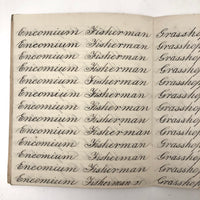 Encomium Fisherman Grasshop
Encomium Fisherman Grasshop
Encomium Fisherman Grasshop
Encomium Fisherman Grasshop
Encomium Fisherman Grasshop
Encomium Fisherman Grasshop
Encomium Fisherman Grasshop
Encomium Fisherman Grasshop
Encomium Fisherman Grasshop
Encomium Fisherman Grasshop
Encomium Fisherman Grasshop
Encomium Fisherman Grasshop
Encomium Fisherman Grasshop